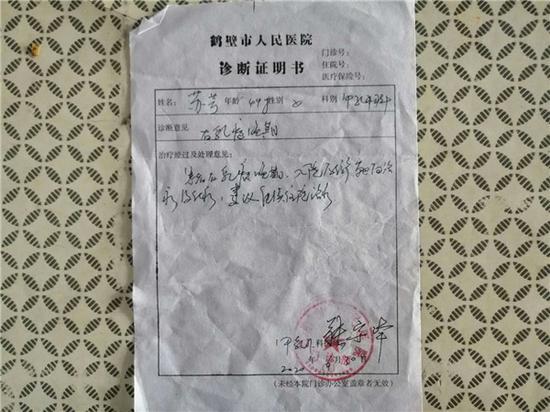 鹤壁市人民医院
诊断证明书
门诊号：
住院号：
医疗保险号：
姓名：苏芳 年龄 49 性别 女 科别 甲乳外科
诊断意见 右乳癌晚期
治疗经过及处理意见：
患者右乳癌晚期，入院后给予
，建议继续住院治疗
甲乳外科
2020年 月30日
（未经本院门诊办公室盖章者无效）